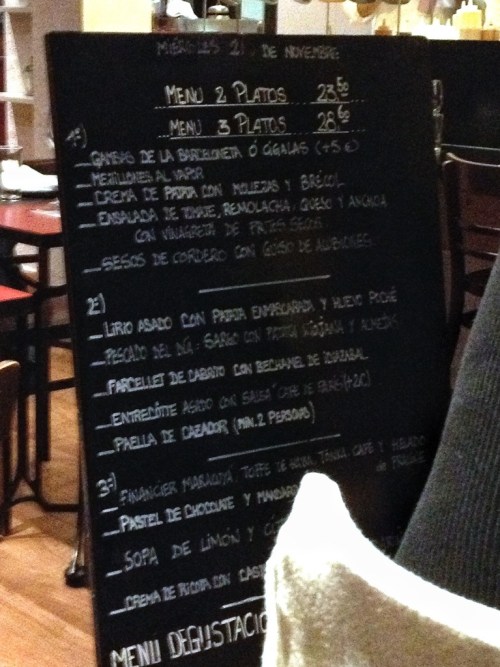 MIÉRCOLES 21 DE NOVIEMBRE
MENU 2 PLATOS 23,50
MENU 3 PLATOS 28,60
1º)
_GAMBAS DE LA BARCELONETA Ó CIGALAS (+5 €)
_MEJILLONES AL VAPOR
_CREMA DE PATATA CON MOLLEJAS Y BRÉCOL
_ENSALADA DE TOMATE, REMOLACHA, QUESO Y ANCHOA
CON VINAGRETA DE FRUTOS SECOS
_SESOS DE CORDERO CON GUISO DE
2º)
_LIRIO ASADO CON PATATA ENMASCARADA Y HUEVO POCHÉ
_PESCADO DEL DÍA: SARGO CON PATATA Y ALMEJAS
_FARCELLET DE CABRITO CON BECHAMEL DE IDIAZABAL
_ENTRECÔTTE ASADO CON SALSA "CAFE DE PARIS" (+2€)
_PAELLA DE CAZADOR (MIN. 2 PERSONAS)
3º)
_FINANCIER MARACUYÁ, TOFFE DE CAFÉ Y HELADO
_PASTEL DE CHOCOLATE Y MANDAR
_SOPA DE LIMÓN Y
_CREMA DE RICOTA CON
MENU DEGUSTACIÓ